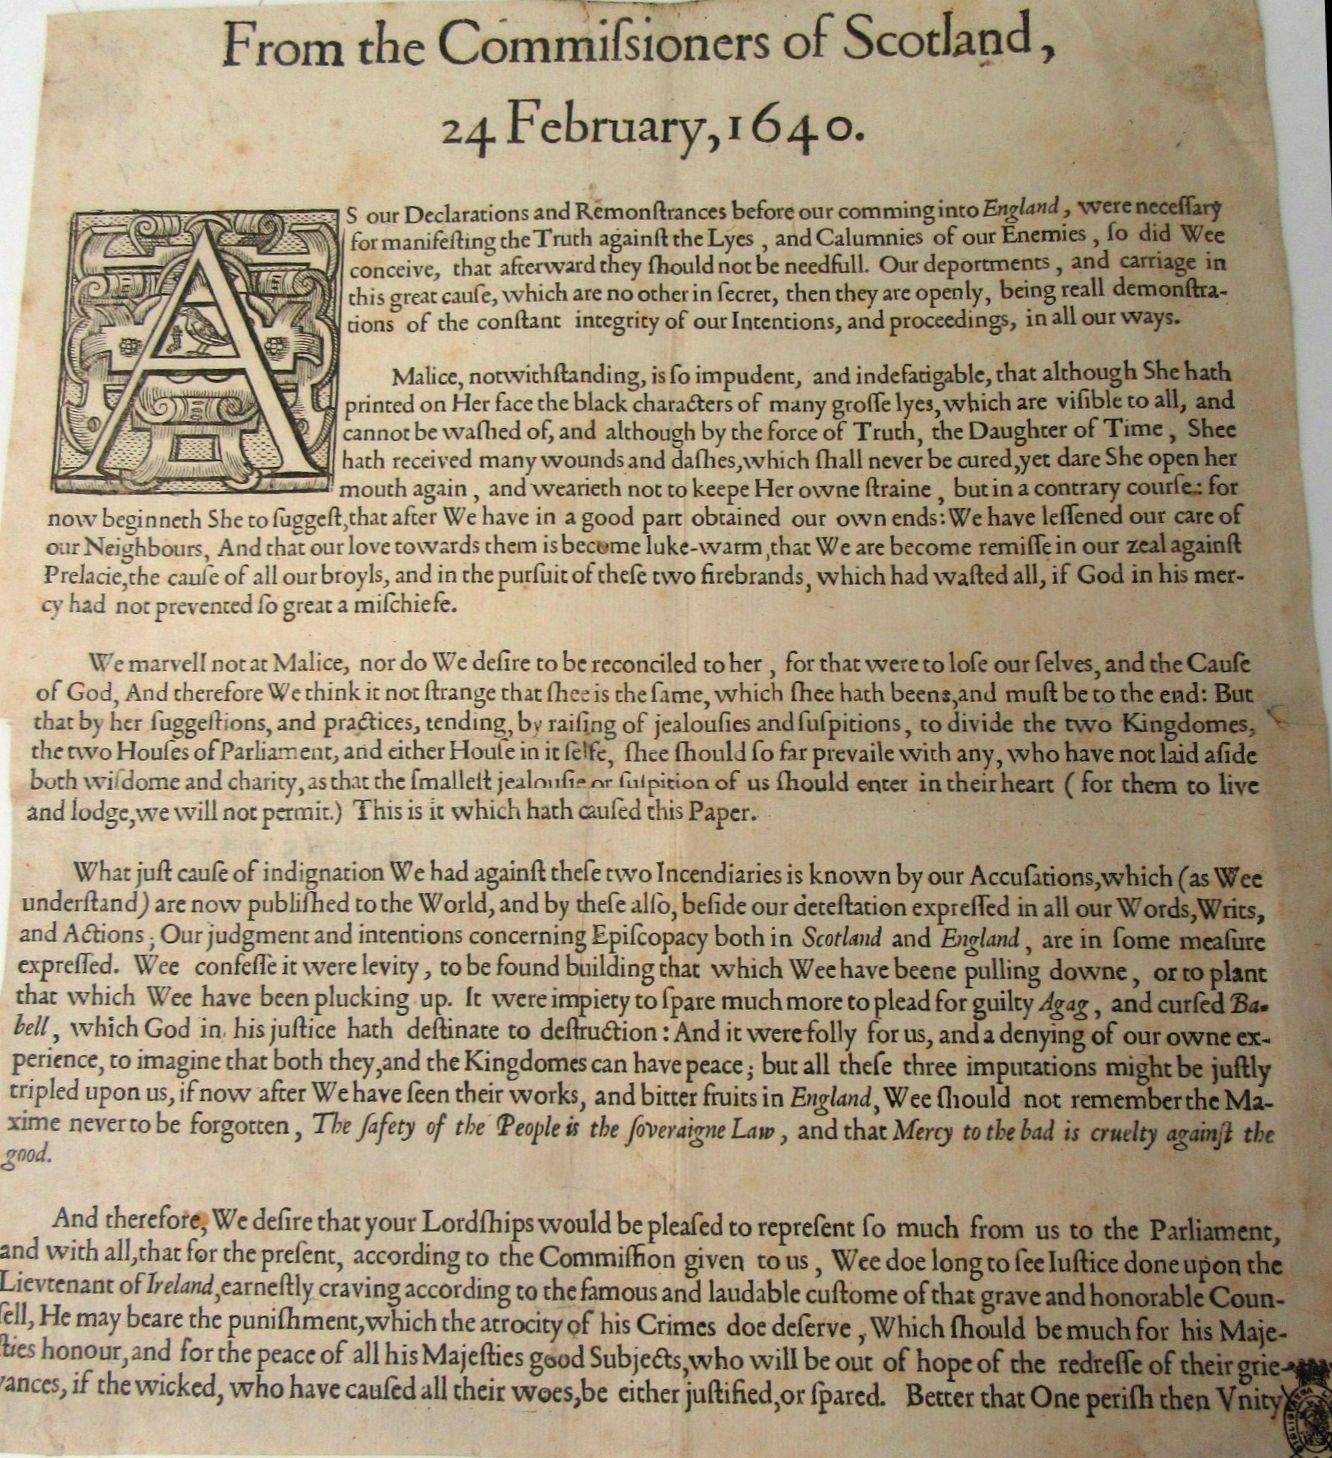 From the Commiſsioners of Scotland,
24 February, 1640.
AS our Declarations and Remonſtrances before our comming into England, were neceſſary
for manifeſting the Truth againſt the Lyes, and Calumnies of our Enemies, ſo did Wee
conceive, that afterward they ſhould not be needfull. Our deportments, and carriage in
this great cauſe, which are no other in ſecret, then they are openly, being reall demonſtra-
tions of the conſtant integrity of our Intentions, and proceedings, in all our ways.
Malice, notwithſtanding, is ſo impudent, and indefatigable, that although She hath
printed on Her face the black characters of many groſſe lyes, which are viſible to all, and
cannot be waſhed of, and although by the force of Truth, the Daughter of Time, Shee
hath received many wounds and daſhes, which ſhall never be cured, yet dare She open her
mouth again, and wearieth not to keepe Her owne ſtraine, but in a contrary courſe: for
now beginneth She to ſuggeſt, that after We have in a good part obtained our own ends: We have leſſened our care of
our Neighbours, And that our love towards them is become luke-warm, that We are become remiſſe in our zeal againſt
Prelacie, the cauſe of all our broyls, and in the purſuit of theſe two firebrands, which had waſted all, if God in his mer-
cy had not prevented ſo great a miſchiefe.
We marvell not at Malice, nor do We deſire to be reconciled to her, for that were to loſe our ſelves, and the Cauſe
of God, And therefore We think it not ſtrange that ſhee is the ſame, which ſhee hath beene, and muſt be to the end: But
that by her ſuggeſtions, and practices, tending, by raiſing of jealouſies and ſuſpitions, to divide the two Kingdomes,
the two Houſes of Parliament, and either Houſe in it ſelfe, ſhee ſhould ſo far prevaile with any, who have not laid aſide
both wiſdome and charity, as that the ſmalleſt jealouſie or ſuſpition of us ſhould enter in their heart ( for them to live
and lodge, we will not permit.) This is it which hath cauſed this Paper.
What juſt cauſe of indignation We had againſt theſe two Incendiaries is known by our Accuſations, which (as Wee
underſtand) are now publiſhed to the World, and by theſe alſo, beſide our deteſtation expreſſed in all our Words, Writs,
and Actions; Our judgment and intentions concerning Epiſcopacy both in Scotland and England, are in ſome meaſure
expreſſed. Wee confeſſe it were levity, to be found building that which Wee have beene pulling downe, or to plant
that which Wee have been plucking up. It were impiety to ſpare much more to plead for guilty Agag, and curſed Ba-
bell, which God in his juſtice hath deſtinate to deſtruction: And it were folly for us, and a denying of our owne ex-
perience, to imagine that both they, and the Kingdomes can have peace; but all theſe three imputations might be juſtly
tripled upon us, if now after We have ſeen their works, and bitter fruits in England, Wee ſhould not remember the Ma-
xime never to be forgotten, The ſafety of the People is the ſoveraigne Law, and that Mercy to the bad is cruelty againſt the
good.
And therefore, We deſire that your Lordſhips would be pleaſed to repreſent ſo much from us to the Parliament,
and with all, that for the preſent, according to the Commiſſion given to us, Wee doe long to ſee Iuſtice done upon the
Lievtenant of Ireland, earneſtly craving according to the famous and laudable cuſtome of that grave and honorable Coun-
ſell, He may beare the puniſhment, which the atrocity of his Crimes doe deſerve, Which ſhould be much for his Maje-
ſties honour, and for the peace of all his Majeſties good Subjects, who will be out of hope of the redreſſe of their grie-
vances, if the wicked, who have cauſed all their woes, be either juſtified, or ſpared. Better that One periſh then Vnity